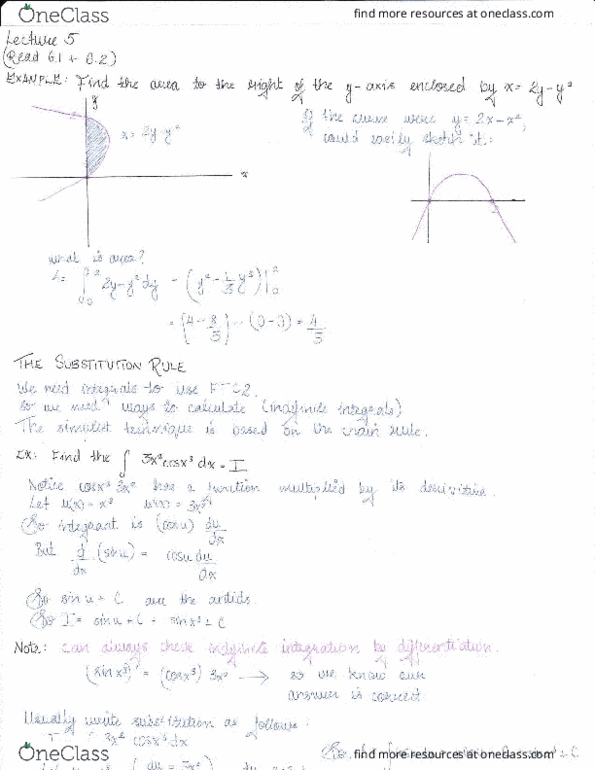 OneClass
find more resources at oneclass.com
Lecture 5
(Read 6.1 + 6.2)
EXAMPLE: Find the area to the right of the y-axis enclosed by x = 2y-y²
y
x = 2y-y²
x
If the curve were y = 2x-x²,
could easily sketch it:
2
what is area?
A = ∫₀² 2y-y² dy = (y² - 1/3 y³)|₀²
= (4 - 8/3) - (0-0) = 4/3
THE SUBSTITUTION RULE
We need integrals to use FTC2.
So we need ways to calculate (indefinite integrals)
The simplest technique is based on the chain rule.
EX: Find the ∫ 3x² cosx³ dx = I
Notice cosx³ 3x² has a function multiplied by its derivative.
Let u(x) = x³ u'(x) = 3x²
So integrant is (cosu) du/dx
But d/dx (sinu) = cosu du/dx
So sinu + C are the antids.
So I = sinu + C = sinx³ + C
Note: can always check indefinite integration by differentiation.
(sinx³)' = (cosx³) 3x² → so we know our
answer is correct
Usually write substitution as follows:
I = ∫ 3x² cosx³ dx
OneClass
find more resources at oneclass.com